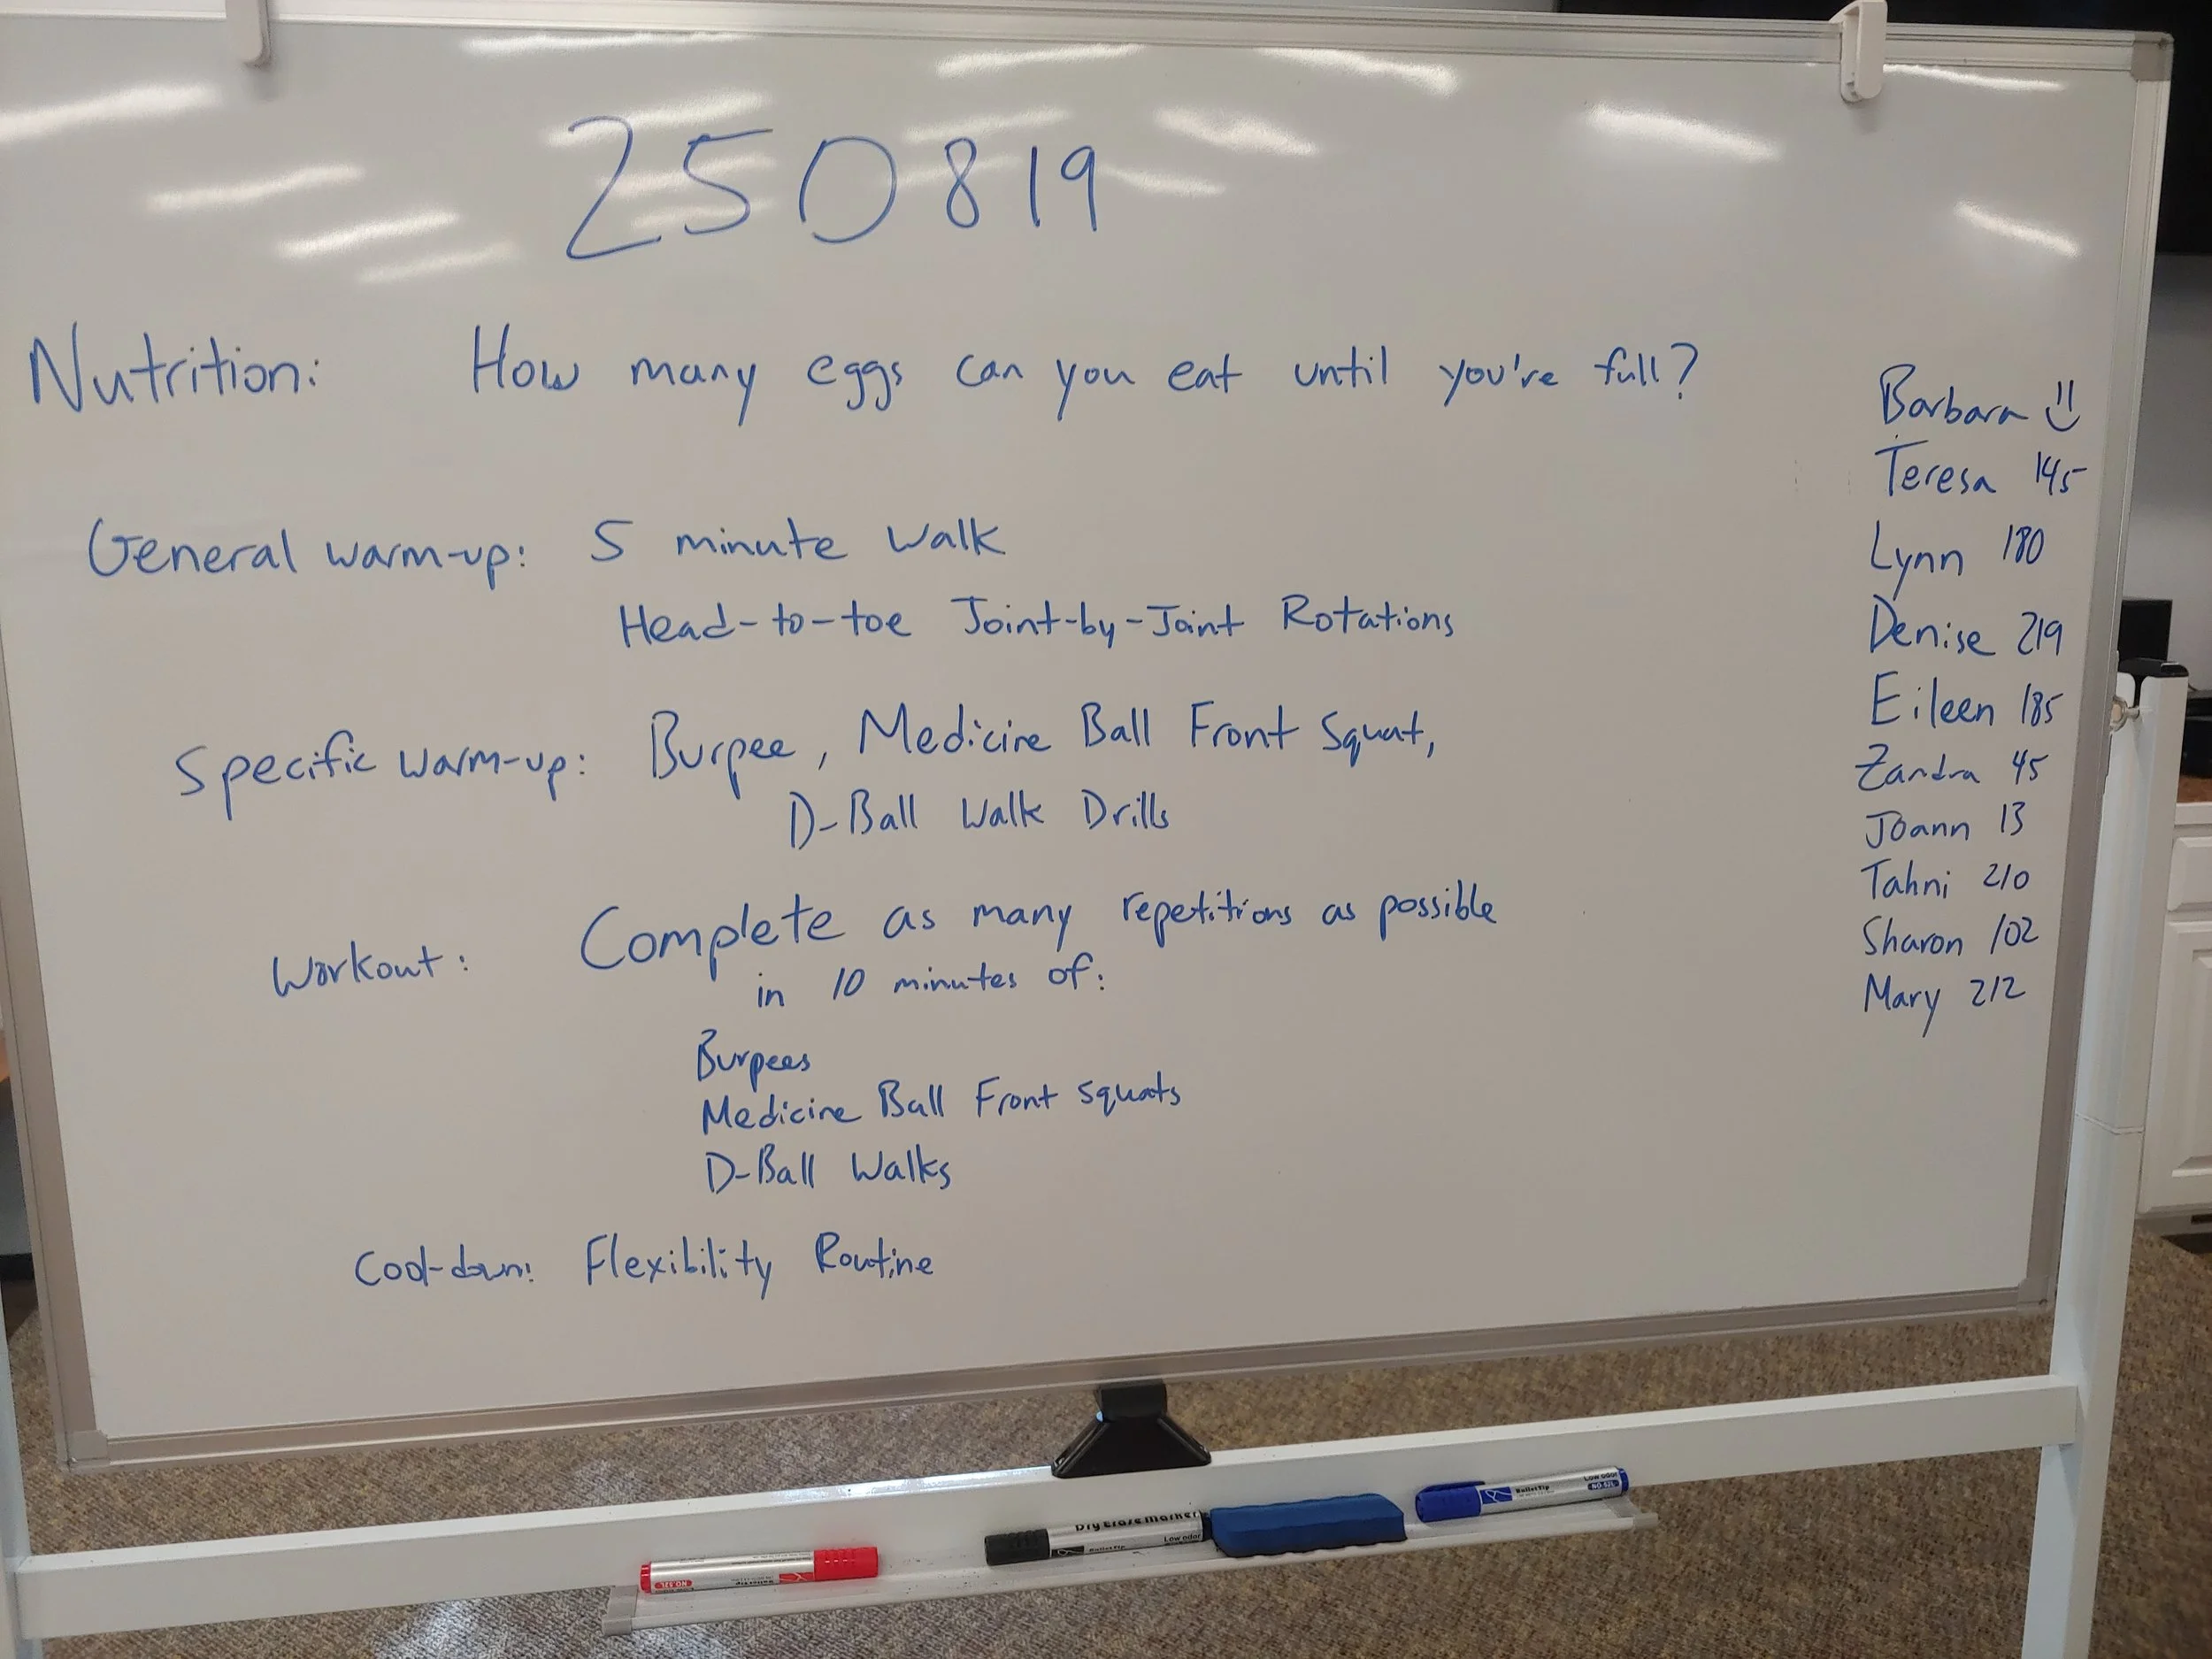 250819
Nutrition: How many eggs can you eat until you're full?
General warm-up: 5 minute walk
Head-to-toe Joint-by-Joint Rotations
Specific warm-up: Burpee, Medicine Ball Front Squat,
D-Ball Walk Drills
Workout: Complete as many repetitions as possible
in 10 minutes of:
Burpees
Medicine Ball Front Squats
D-Ball Walks
Cool-down: Flexibility Routine
Barbara
Teresa 145
Lynn 180
Denise 219
Eileen 185
Zandra 45
Joann 13
Tahni 210
Sharon 102
Mary 212
Dry Erase Marker
Low odor
BulletTip
Low odor
BulletTip
NO.52L